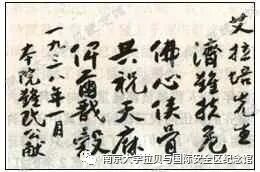 艾拉培先生
濟難扶危
佛心俠骨
共祝天庥
俾爾戩穀
一九三八年一月
本院難民公獻
南京大学拉贝与国际安全区纪念馆